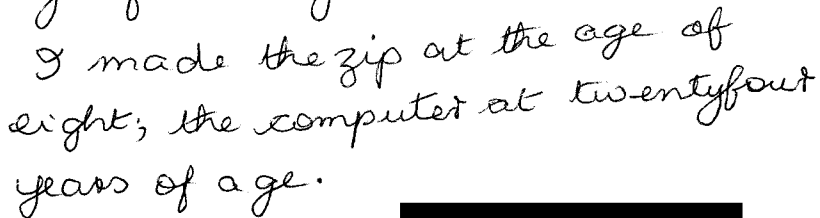 I made the zip at the age of
eight; the computer at twentyfour
years of age.